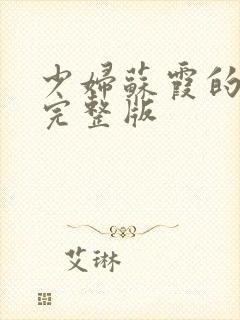 少婦蘇霞的
完整版
艾琳